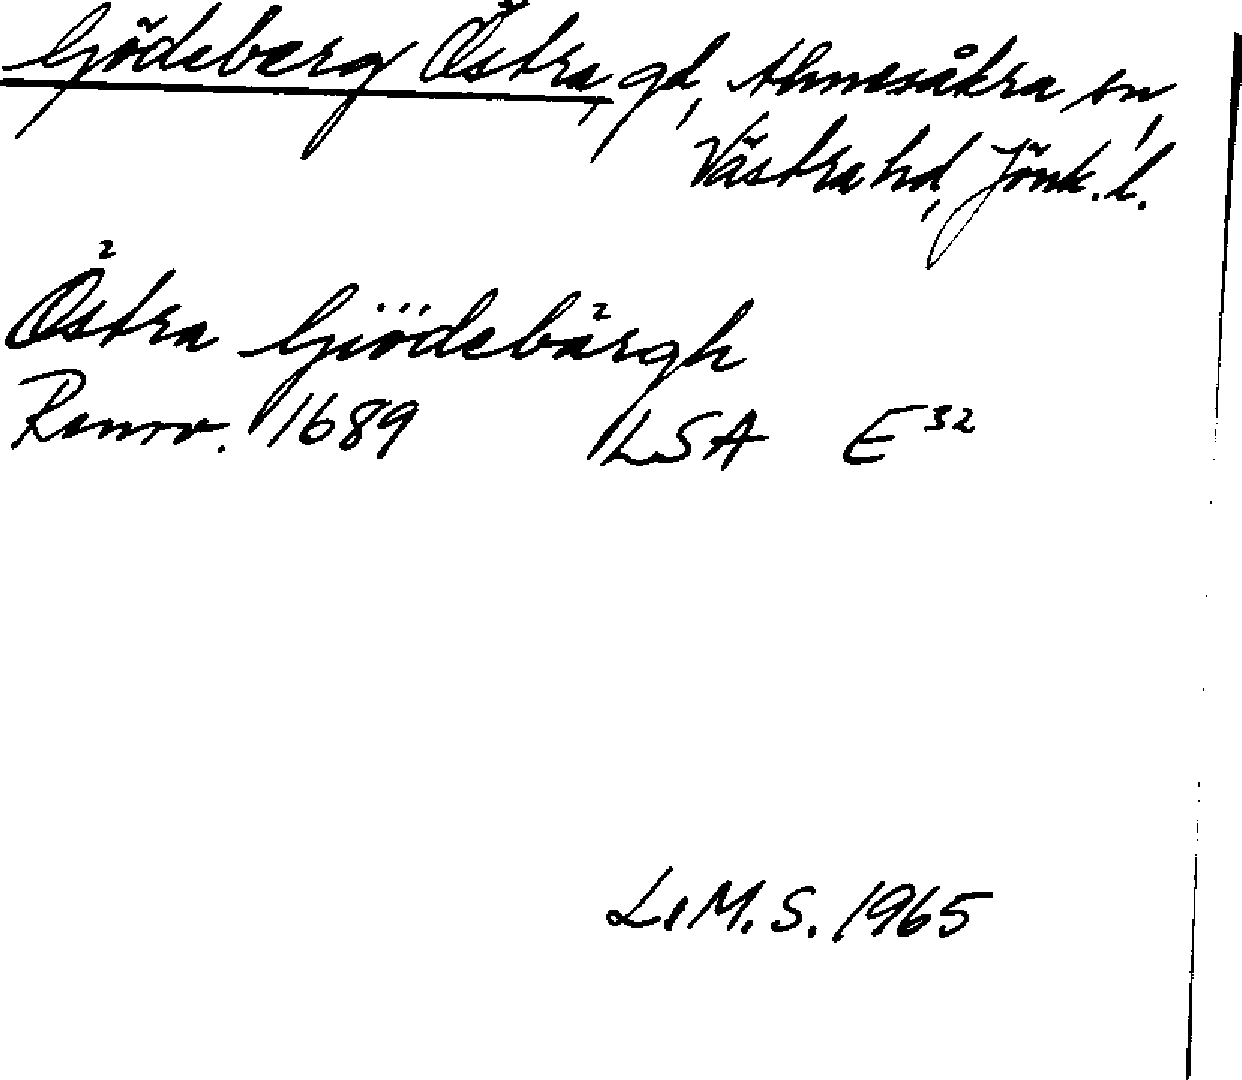 Gjödeberg Östra, gd, Almesåkra sn,
Västra hd, Jönk. l.
Östra Giödebärgh
Rannr. 1689 LSA E32
L.M.S. 1965